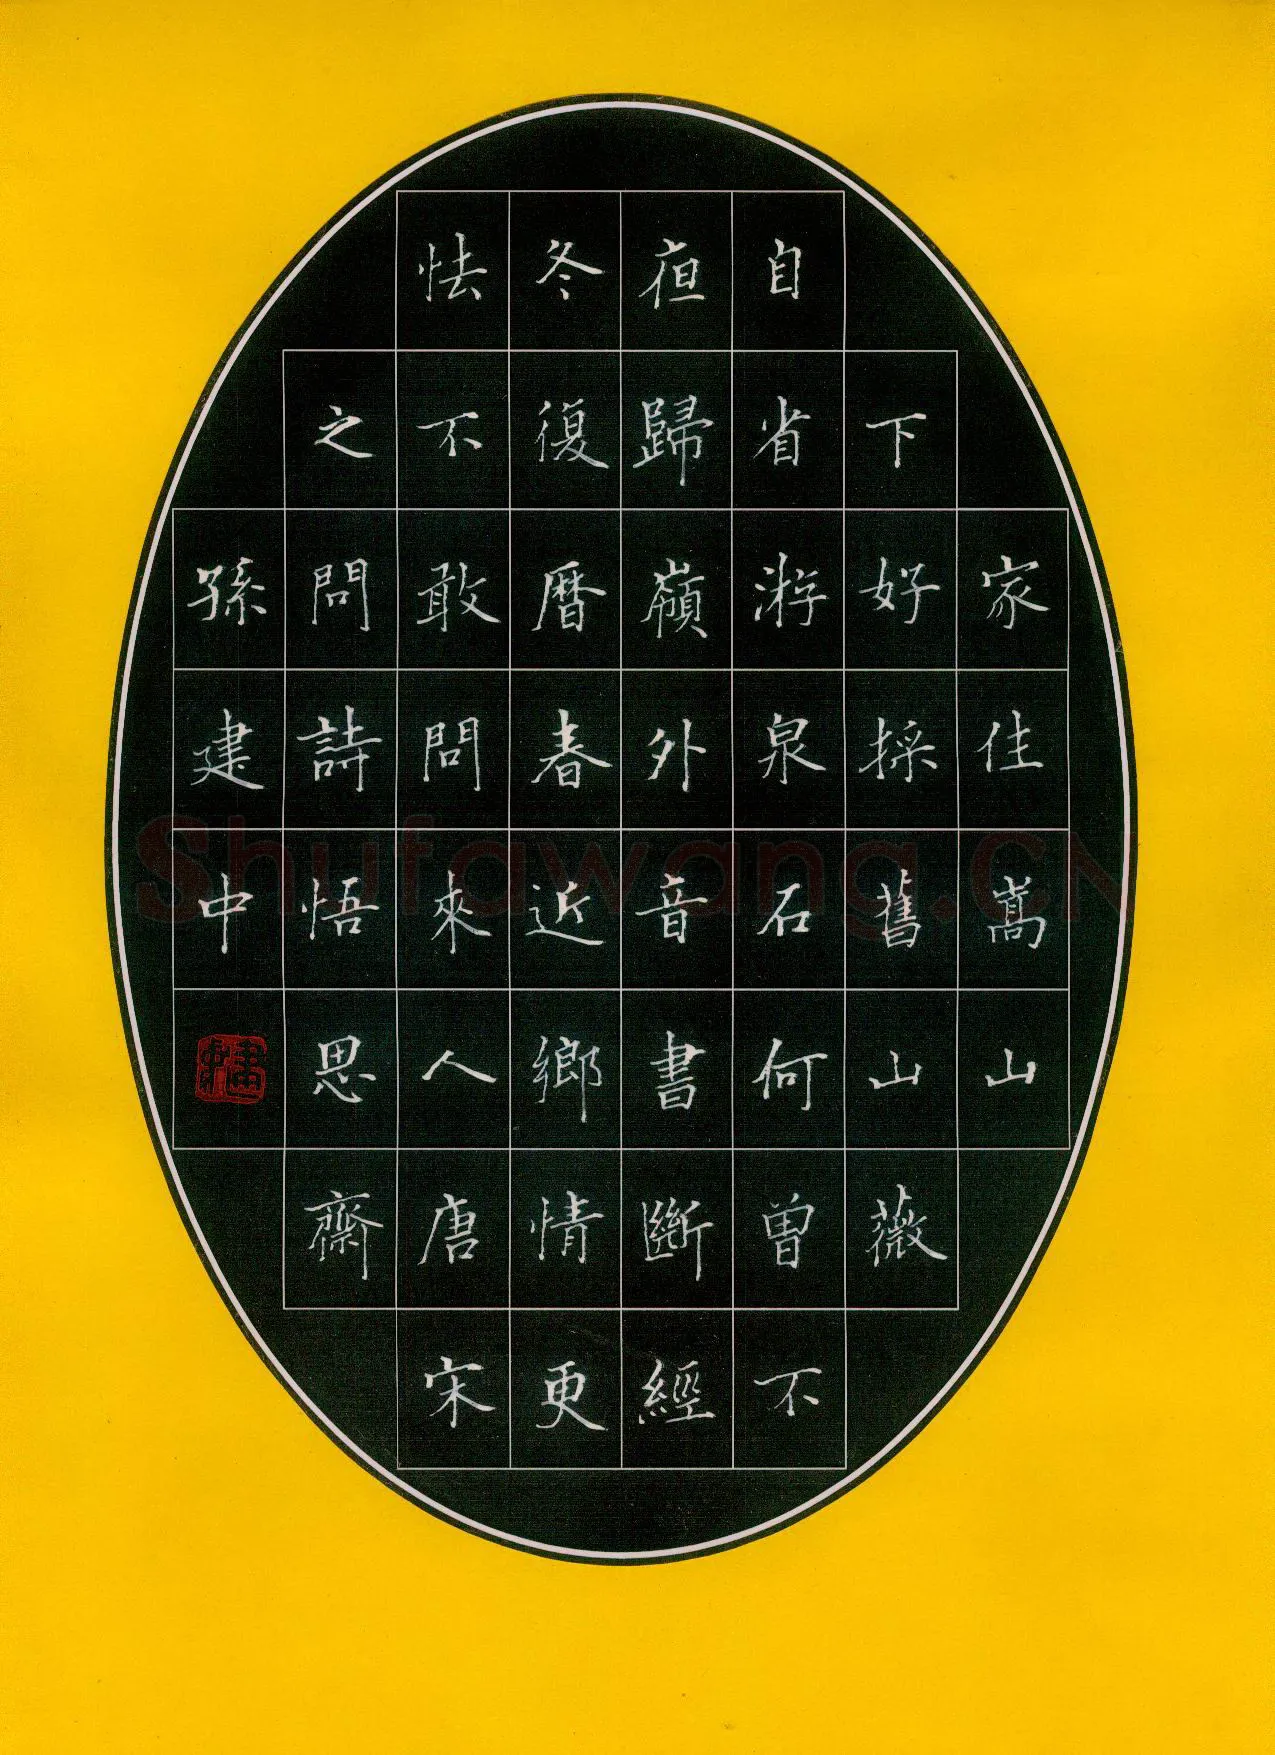 家住嵩山
下好採舊山薇
自省游泉石何曾不
夜歸嶺外音書斷經
冬復曆春近鄉情更
怯不敢問來人唐宋
之問詩悟思齋
孫建中
Shufawang.CN